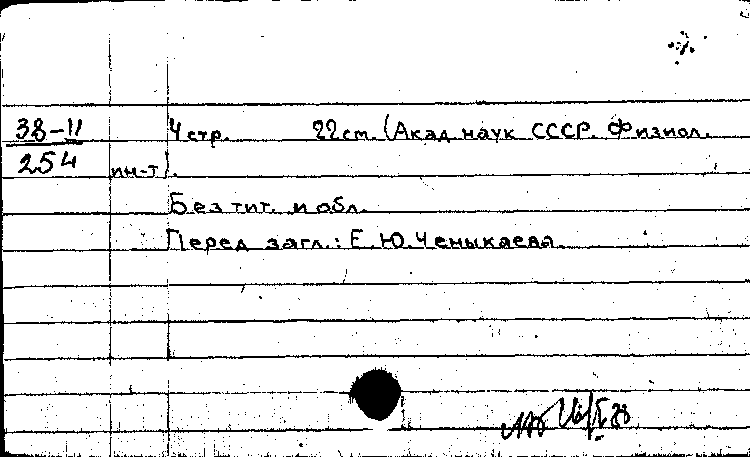 38-11 4 стр. 22 см. (Акад. наук СССР. Физиол.
254 ин-т).
Без тит. и обл.
Перед загл.: Е. Ю. Ченыкаева.